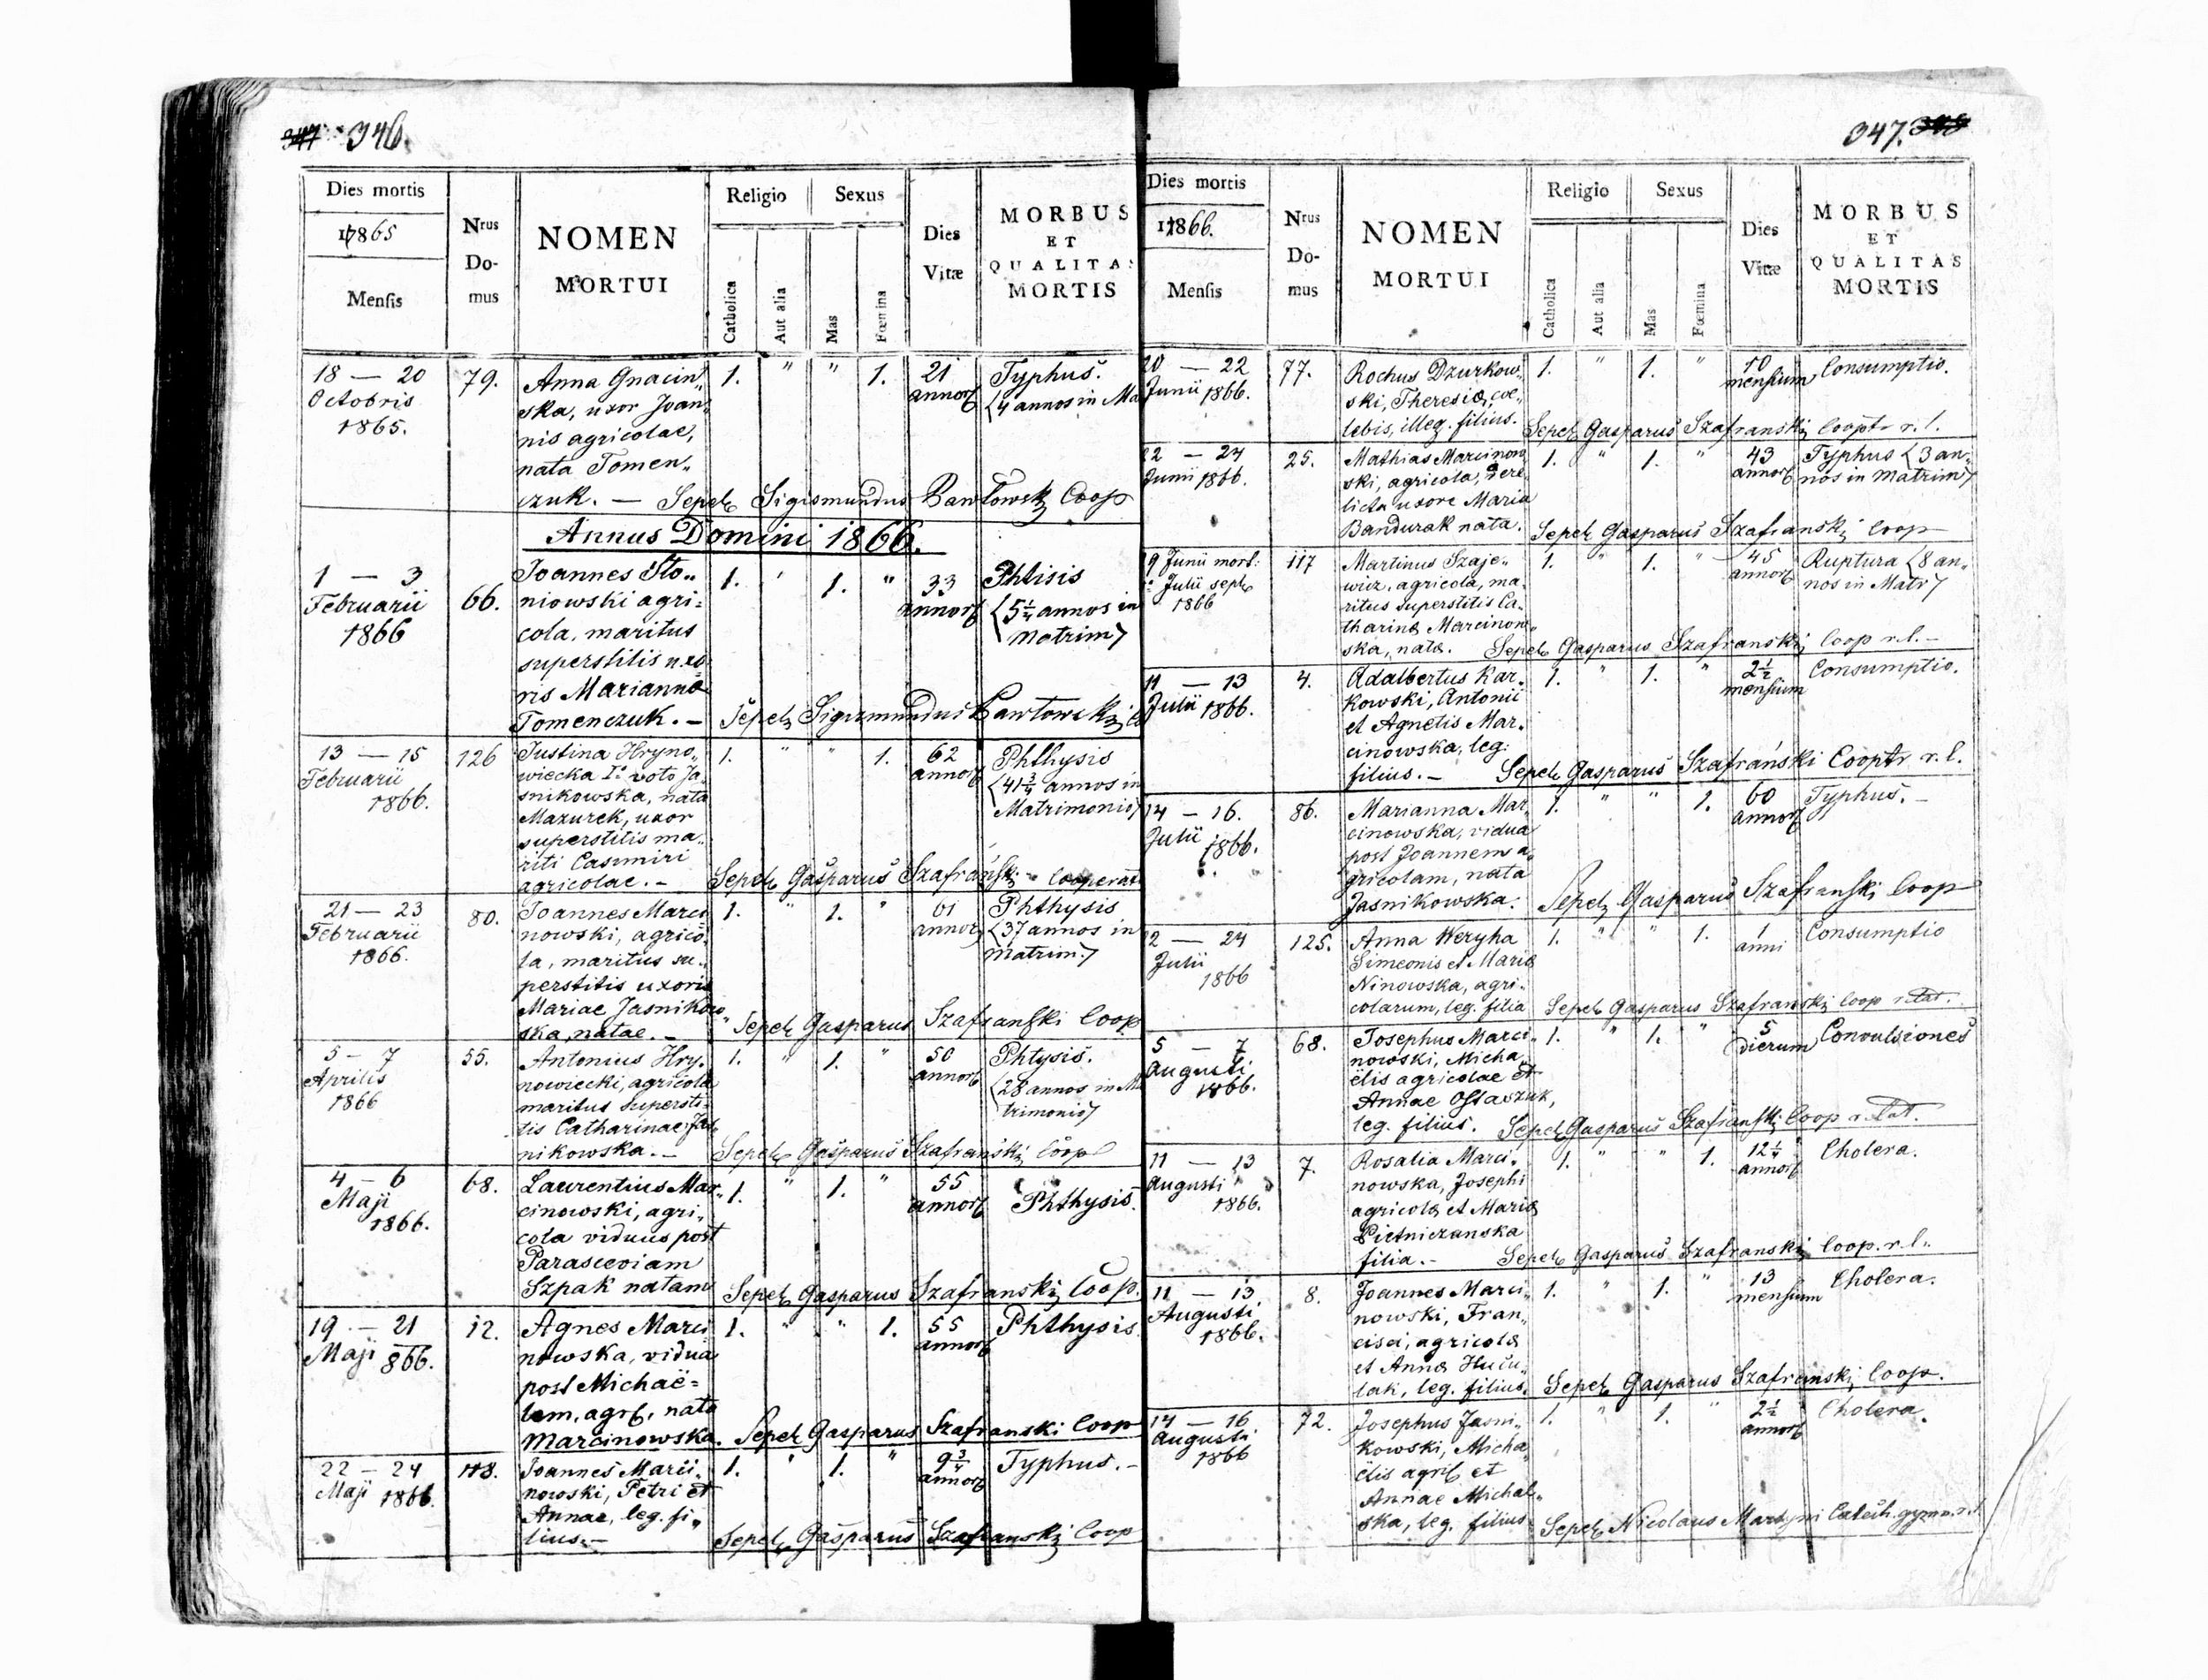 346.
Dies mortis
1865
Mensis
Nrus
Do-
mus
NOMEN
MORTUI
Religio
Catholica
Aut alia
Sexus
Mas
Fœmina
Dies
Vitæ
MORBUS
ET
QUALITAS
MORTIS
18 — 20
Octobris
1865.
79.
Anna Gnacin„
ska, uxor Joan„
nis agricolae,
nata Tomen„
czuk. — Sepel. Sigismundus Pawłowski Coop
1. " " 1.
21
annor.
Typhus.
(4 annos in Ma
Annus Domini 1866.
1 — 3
Februarii
1866
66.
Joannes Sto„
niowski agri=
cola, maritus
superstitis uxo
ris Marianna
Tomenczuk. — Sepel. Sigismundus Pawłowski
1. ' 1. "
33
annor.
Phtisis
(5 1/4 annos in
Matrim)
13 — 15
Februarii
1866.
126
Justina Hryno„
wiecka I° voto Ja„
snikowska, nata
Mazurek, uxor
superstitis ma„
riti Casimiri
agricolae. — Sepel. Gasparus Szafrański cooperat
1. " " 1.
62
annor.
Phthysis
(41 3/4 annos in
Matrimonio)
21 — 23
Februarii
1866.
80.
Joannes Marci
nowski, agrico„
la, maritus su„
perstitis uxoris
Mariae Jasnikow
ska, natae. — Sepel. Gasparus Szafranski Coop
1. " 1. "
61
annor.
Phthysis
(37 annos in
matrim.)
5 — 7
Aprilis
1866
55.
Antonius Hry„
nowiecki, agricola
maritus supersti„
tis Catharinae Jas
nikowska. — Sepel. Gasparus Szafranski Coop
1. " 1. "
50
annor.
Phtysis.
(28 annos in M
trimonio)
4 — 6
Maji
1866.
68.
Laurentius Mar„
cinowski, agri„
cola viduus post
Parasceviam
Szpak natam Sepel. Gasparus Szafranski Coop.
1. " 1. "
55
annor.
Phthysis.
19 — 21
Maji 866.
12.
Agnes Marci
nowska, vidua
post Michaë=
lem, agr., nata
Marcinowska. Sepel. Gasparus Szafranski Coop
1. " " 1.
55
annor.
Phthysis
22 — 24
Maji 1866.
118.
Joannes Marci„
nowski, Petri et
Annae, leg. fi„
lius. — Sepel. Gasparus Szafranski Coop
1. " 1. "
9 3/4
annor.
Typhus. —
347.
Dies mortis
1866.
Mensis
Nrus
Do-
mus
NOMEN
MORTUI
Religio
Catholica
Aut alia
Sexus
Mas
Fœmina
Dies
Vitæ
MORBUS
ET
QUALITAS
MORTIS
20 — 22
Junii 1866.
77.
Rochus Dzurkow„
ski, Theresia, coe„
lebis, illeg. filius. Sepel. Gasparus Szafranski Cooptr r. l.
1. " 1. "
10
mensium
Consumptio.
22 — 24
Junii 1866.
25.
Mathias Marcinow
ski, agricola, dere
licta uxore Maria
Bandurak nata. Sepel. Gasparus Szafranski Coop
1. " 1. "
43
annor.
Typhus (3 an„
nos in Matrim)
9 Junii mort:
Julii sepl.
1866
117
Martinus Szaje„
wicz, agricola, ma„
ritus superstitis Ca„
tharina Marcinow„
ska, nata. Sepel. Gasparus Szafranski Coop r. l. —
1. " 1. "
45
annor.
Ruptura (8 an„
nos in Matr)
11 — 13
Julii 1866.
4.
Adalbertus Kar„
kowski, Antonii
et Agnetis Mar„
cinowska, leg:
filius. — Sepel. Gasparus Szafrański Cooptr r. l.
1. " 1. "
2 1/2
mensium
Consumptio.
14 — 16.
Julii 1866.
86.
Marianna Mar„
cinowska, vidua
post Joannem a„
gricolam, nata
Jasnikowska. Sepel. Gasparus Szafranski Coop
1. " " 1.
60
annor.
Typhus. —
22 — 24
Julii
1866
125.
Anna Weryha
Simeonis et Maria
Ninowska, agri„
colarum, leg. filia Sepel. Gasparus Szafranski Coop r. lat.
1. " " 1.
1
anni
Consumptio
5 — 7
Augusti
1866.
68.
Josephus Marci„
nowski, Micha„
ëlis agricolae et
Annae Ostaszuk,
leg. filius. Sepel. Gasparus Szafranski Coop r. lat.
1. " 1. "
5
dierum
Convulsiones
11 — 13
Augusti
1866.
7.
Rosalia Marci„
nowska, Josephi
agricola et Maria
Pietniczanska
filia. — Sepel. Gasparus Szafranski Coop. r. l.
1. " " 1.
12 1/4
annor.
Cholera.
11 — 13
Augusti
1866.
8.
Joannes Marci„
nowski, Fran„
cisci, agricola
et Anna Hucu„
lak, leg. filius. Sepel. Gasparus Szafranski Coop.
1. " 1. "
13
mensium
Cholera.
14 — 16
Augusti
1866
72.
Josephus Jasni„
kowski, Micha
ëlis agric. et
Annae Michal„
ska, leg. filius Sepel. Nicolaus Martyni Catech. gymn. r. l.
1. " 1. "
2 1/2
annor.
Cholera.